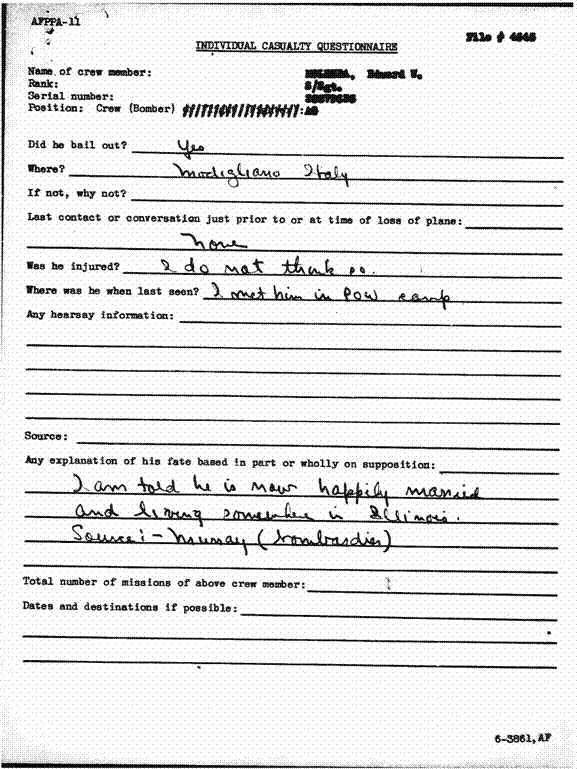 AFPPA-11
File # 4645
INDIVIDUAL CASUALTY QUESTIONNAIRE
Name of crew member: Edward W.
Rank: S/Sgt.
Serial number:
Position: Crew (Bomber)
Did he bail out? Yes
Where? Modigliano Italy
If not, why not?
Last contact or conversation just prior to or at time of loss of plane:
None
Was he injured? I do not think so.
Where was he when last seen? I met him in POW camp
Any hearsay information:
Source:
Any explanation of his fate based in part or wholly on supposition:
I am told he is now happily married
and living somewhere in Illinois.
Source:- Murray (bombardier)
Total number of missions of above crew member:
Dates and destinations if possible:
6-3861,AF